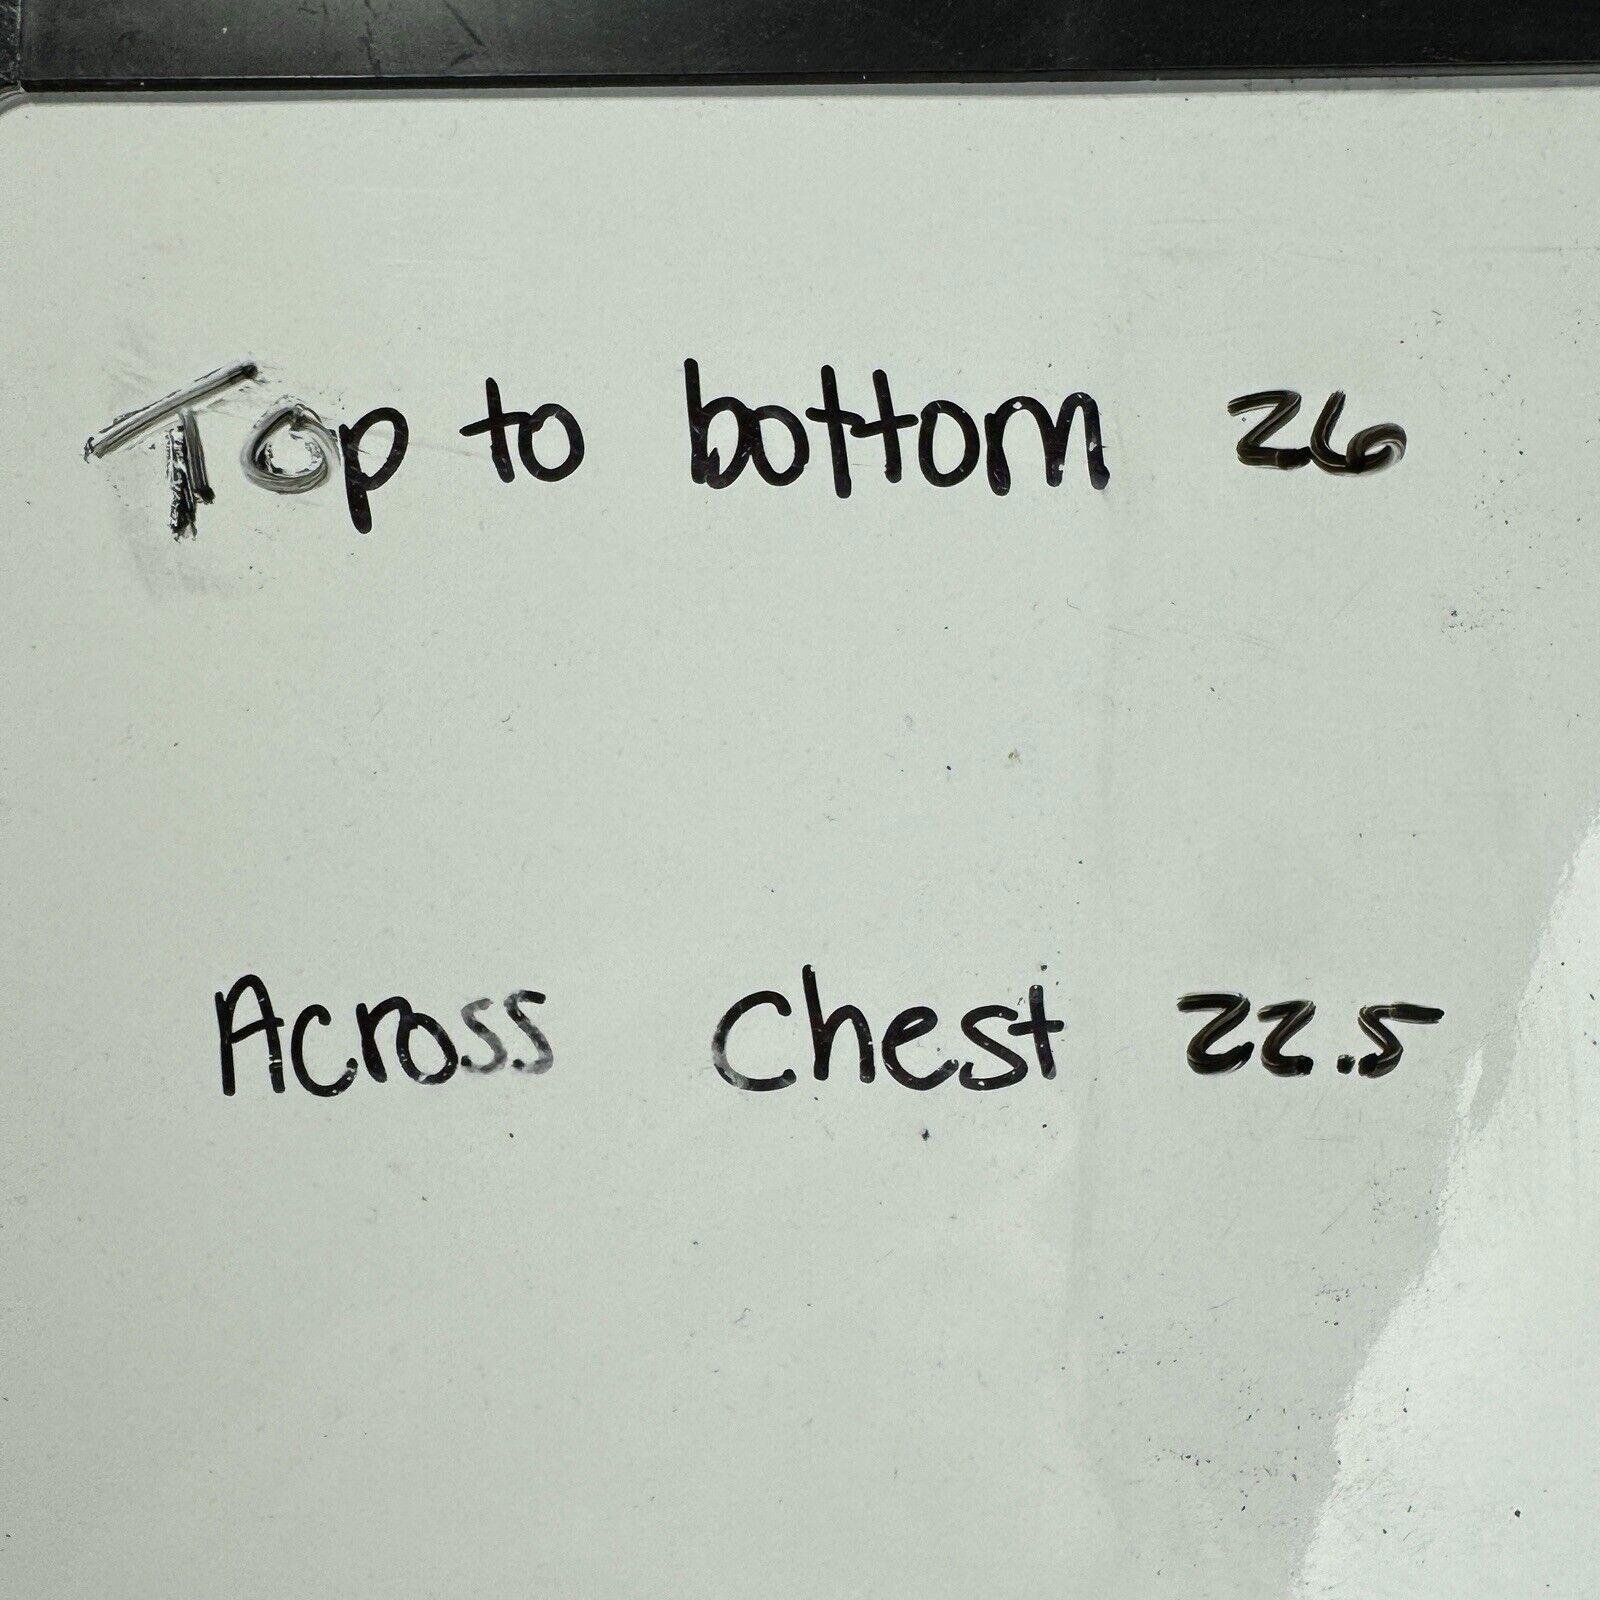 Top to bottom 26
Across Chest 22.5